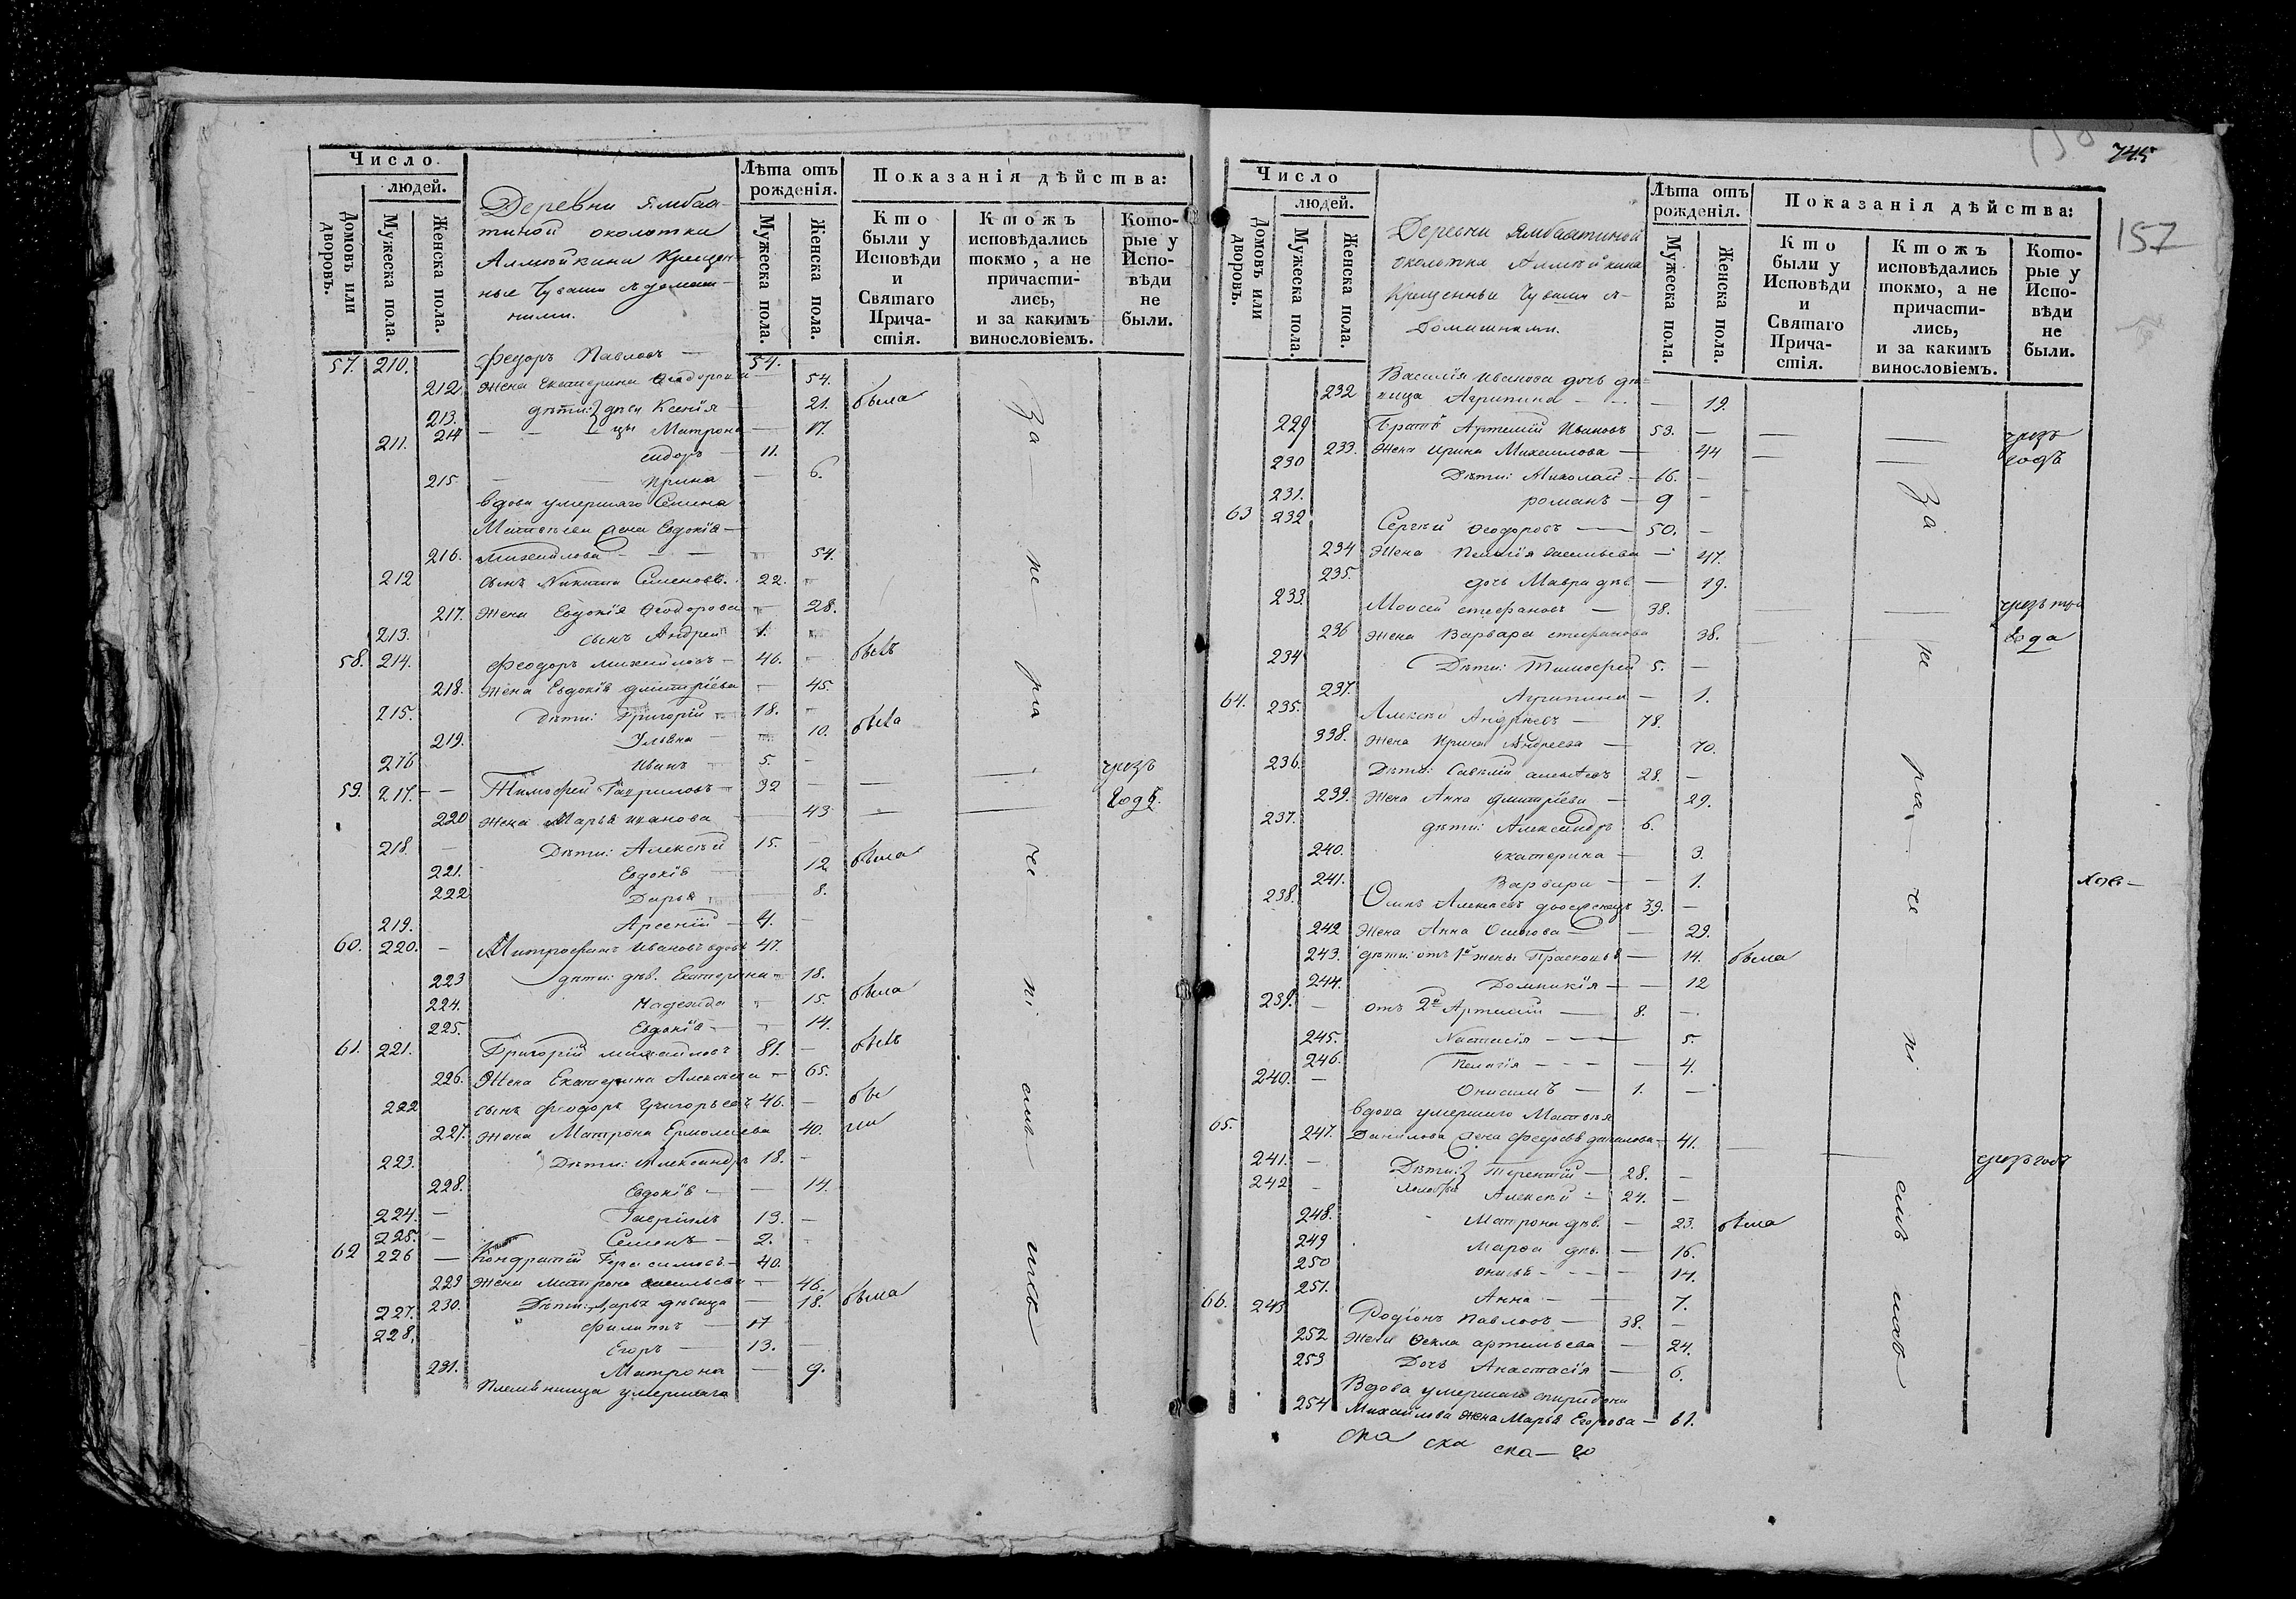 Число
людей.
Домовъ или дворовъ.
Мужеска пола.
Женска пола.
Деревни Ямбах-
тиной околотка
Алмойкина Крещен-
ные Чуваши съ домаш-
ними.
Лѣта отъ
рожденія.
Мужеска пола.
Женска пола.
Показанія дѣйства:
Кто
были у
Исповѣди
и
Святаго
Прича-
стія.
Ктожъ
исповѣдались
токмо, а не
причасти-
лись,
и за какимъ
винословіемъ.
Кото-
рые у
Испо-
вѣди
не
были.
57. 210. Федоръ Павловъ — 54.
212. Жена Екатерина Ѳеодорова — 54.
213. дѣти: дѣви Ксенія — 21. была
214 — — цы Матрона — 17.
211. Сидоръ — 11.
215 — Ирина — 6.
вдова умершаго Семена
Матвѣева жена Евдокія —
216. Михайлова — — — 54.
212 сынъ Никита Семеновъ. 22.
217. Жена Евдокія Ѳеодорова — 28.
213. сынъ Андрей 1.
58. 214. Феодоръ Михайловъ — 46. — былъ
218. Жена Евдокія Дмитріева — 45.
215. Дѣти: Григорій — 18.
219. Ульяна — 10. была
216 Иванъ 5. —
59. 217. — — Тимофей Гавриловъ — 32 — — — чрезъ
220 Жена Марья Иванова — 43 — — годъ.
218. — Дѣти: Алексѣй 15. —
221. Евдокія — 12 была
222 Дарья — 8.
219. Арсеній — 4. —
60. 220. — Митрофанъ Ивановъ вдовъ 47.
223 дѣти: дѣв. Екатерина — 18.
224. Надежда — 15. была
225. Евдокія — — 14.
61. 221. Григорій Михайловъ 81. — былъ
226. Жена Екатерина Алексѣева — 65.
222 сынъ Феодоръ Григорьевъ 46. — бы
227. Жена Матрона Ермолаева 40. ли
223. Дѣти: Александръ 18. —
228. Евдокія — — 14.
224. — Гавріилъ 13. —
225. — Семенъ — 2. —
62 226 — Кондратій Герасимовъ — 40.
229 Жена Матрона Васильева — 46.
230. Дѣти: Марья дѣвица — 18. была
227. Филиппъ — 17
228. Егоръ — 13. —
231. Матрона — 9.
Племѣнница умершаго
За
не
ра
че
ні
емъ
ихъ
745
157
Число
людей.
Домовъ или дворовъ.
Мужеска пола.
Женска пола.
Деревни Ямбахтиной
околотка Алмойкина
Крещенные Чуваши съ
домашними.
Лѣта отъ
рожденія.
Мужеска пола.
Женска пола.
Показанія дѣйства:
Кто
были у
Исповѣди
и
Святаго
Прича-
стія.
Ктожъ
исповѣдались
токмо, а не
причасти-
лись,
и за какимъ
винословіемъ.
Кото-
рые у
Испо-
вѣди
не
были.
Василія Иванова дочь дѣ-
232 вица Агрипина — — — 19.
229 Братъ Артемій Ивановъ 53. — — — чрезъ
233. Жена Ирина Михайлова — 44 — — годъ
230 Дѣти: Николай — 16. —
231. романъ — 9 —
63 232 Сергѣй Ѳеодоровъ — 50. —
234 Жена Пелагія Васильева — 47.
235. дочь Мавра дѣв. — 19.
233 Моисей Стефановъ — 38. — — чрезъ три
236 Жена Варвара Стефанова 38. — года
234 Дѣти: Тимофей 5. —
237. Агрипина — 1.
64. 235. Алексѣй Андреевъ — 78.
338. Жена Ирина Андреева — 70.
236. Дѣти: Савелій Алексѣевъ 28. —
239. Жена Анна Дмитріева — 29.
237. дѣти: Александръ 6.
240. Екатерина — 3.
241. Варвара — — 1.
238. Алексѣевъ 39. —
242 Жена Анна Осипова — — 29.
243. дѣти: отъ 1й жены Прасковья — 14. была
244. Домникія — — 12
239. — отъ 2й Артемій — 8. —
245. Настасія — — — 5.
246. Пелагія — — — — 4.
240. — Онисимъ — 1. —
вдова умершаго Матвѣя
65. 247. Данилова жена Федосья Данилова — 41. — — чрезъ годъ
241. — Дѣти: Терентій — 28. —
242 — Алексѣй — 24. —
248. Матрона дѣв. — 23. была
249 Марѳа дѣв. — 16.
250 Онисья — — — — 14.
251. Анна — — 7.
66. 243. Родіонъ Павловъ — 38. —
252 Жена Ѳекла Артемьева — 24.
253 Дочь Анастасія — 6.
Вдова умершаго Спиридона
254 Михайлова жена Марья Егорова — 61.
За
не
ра
че
ні
емъ
ихъ